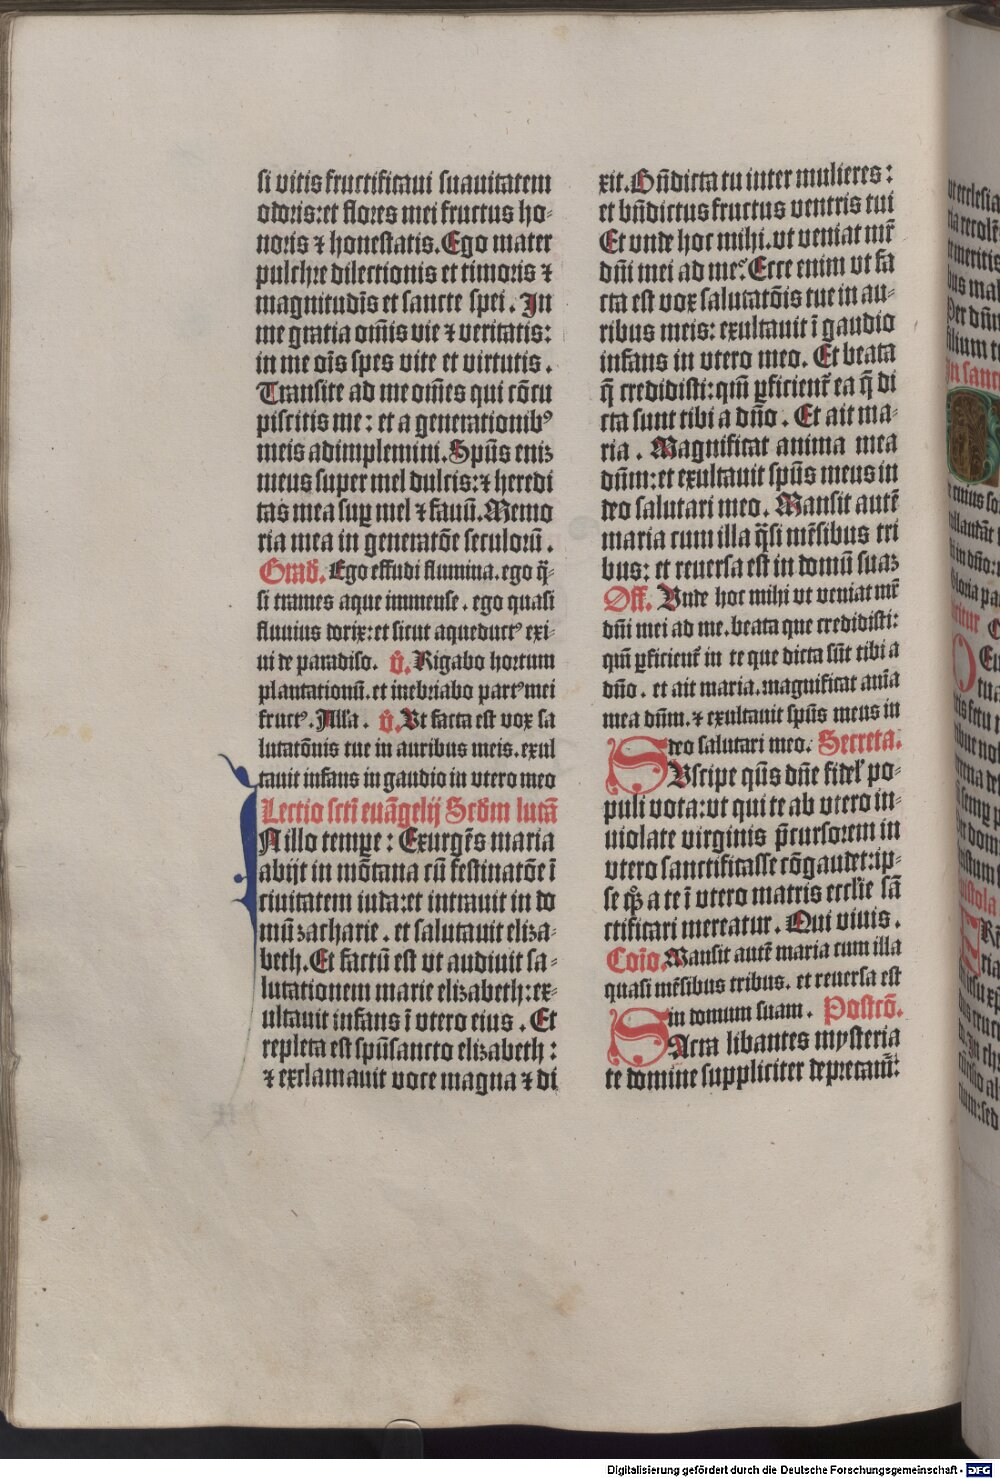 si vitis fructificaui suauitatem
odoris:et flores mei fructus ho-
noris ⁊ honestatis.Ego mater
pulchre dilectionis et timoris ⁊
magnitudis̄ et sancte spei. In
me gratia om̄is vie ⁊ veritatis:
in me ois̄ spes vite et virtutis.
Transite ad me om̄es qui cōcu
piscitis me: et a generationibꝰ
meis adimplemini.Spūs eniꝫ
meus super mel dulcis:⁊ heredi
tas mea suꝑ mel ⁊ fauū.Memo
ria mea in generatōe seculorū.
Grad̄. Ego effudi flumina.ego q̄-
si trames aque immense. ego quasi
fluuius dorix:et sicut aqueductꝰ exi-
ui de paradiso. v̄. Rigabo hortum
plantationū.et inebriabo partꝰ mei
fructꝰ. Alla. v̄. Vt facta est vox sa
lutatōnis tue in auribus meis.exul
tauit infans in gaudio in vtero meo
Lectio scti euāgelij Scd̄m lucā
IN illo tempꝛe: Exurgēs maria
abijt in mōtana cū festinatōe ī
ciuitatem iuda:et intrauit in do
mū zacharie. et salutauit eliza-
beth.Et factū est vt audiuit sa-
lutationem marie elizabeth:ex-
ultauit infans ī vtero eius. Et
repleta est spūsancto elizabeth:
⁊ exclamauit voce magna ⁊ di
xit.Bn̄dicta tu inter mulieres:
et bn̄dictus fructus ventris tui
Et vnde hoc mihi.vt veniat mr̄
dn̄i mei ad me? Ecce enim vt fa
cta est vox salutatōis tue in au-
ribus meis: exultauit ī gaudio
infans in vtero meo. Et beata
q̄ credidisti:qm̄ ꝑficient̄ ea q̄ di
cta sunt tibi a dn̄o. Et ait ma-
ria. Magnificat anima mea
dn̄m:et exultauit spūs meus in
deo salutari meo. Mansit autē
maria cum illa q̄si mēsibus tri
bus: et reuersa est in domū suaꝫ
Off. Vnde hoc mihi vt veniat mr̄
dn̄i mei ad me.beata que credidisti:
qm̄ ꝑficient̄ in te que dicta sūt tibi a
dn̄o. et ait maria.magnificat aīa
mea dn̄m.⁊ exultauit spūs meus in
deo salutari meo. Secreta.
SVscipe qs̄ dn̄e fidel̄ po-
puli vota:vt qui te ab vtero in-
uiolate virginis p̄cursorem in
vtero sanctificasse cōgaudet:ip-
se qꝫ a te ī vtero matris ecclīe sā
ctificari mereatur. Qui viuis.
Coīo. Mansit autē maria cum illa
quasi mēsibus tribus. et reuersa est
in domum suam. Postcō.
SAcra libantes mysteria
te domine suppliciter deprecam̄: